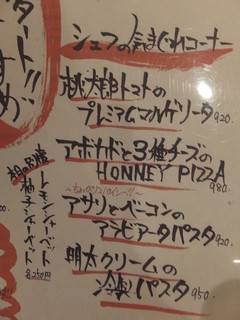 シェフの気まぐれコーナー
桃太郎トマトの
プレミアムマルゲリータ 920.
アボカドと3種チーズの
HONNEY PIZZA 980.
アサリとベーコンの
アラビアータパスタ 920.
明太クリームの
冷製パスタ 950.
レモンシャーベット
柚子シャーベット
各250円